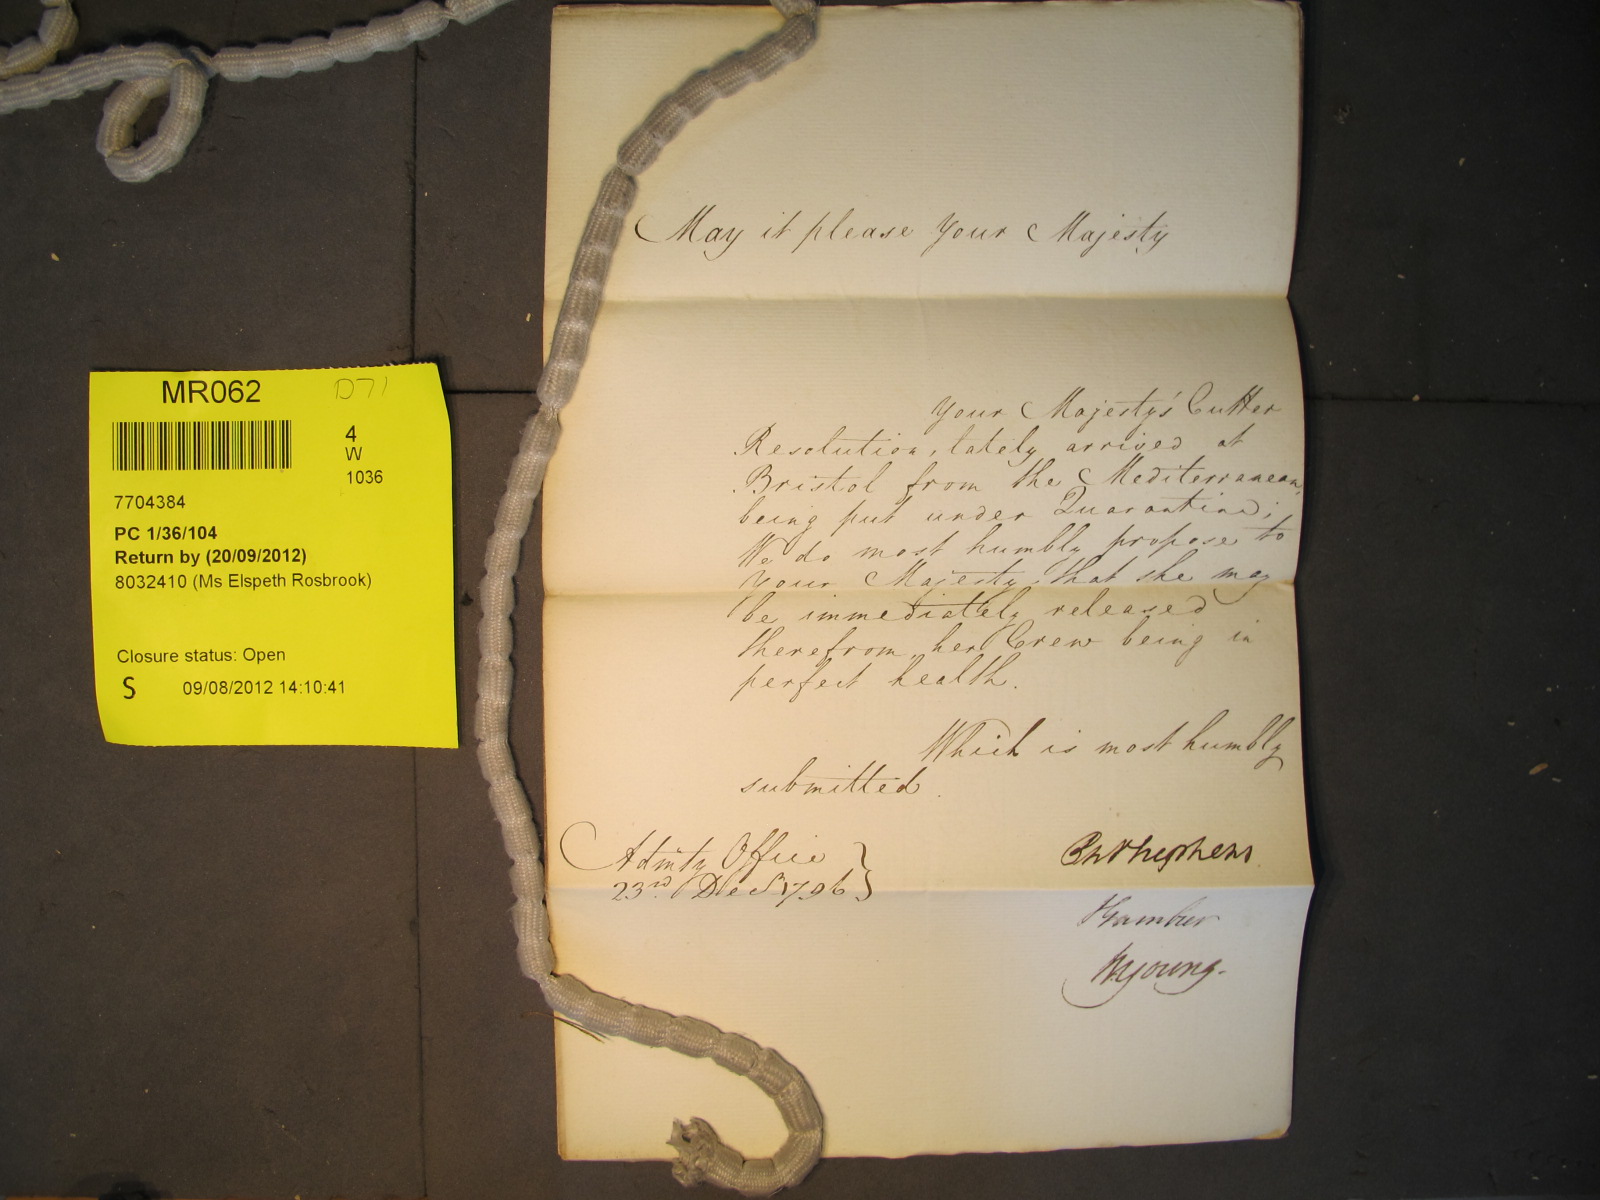 MR062
D71
4
W
1036
7704384
PC 1/36/104
Return by (20/09/2012)
8032410 (Ms Elspeth Rosbrook)
Closure status: Open
S 09/08/2012 14:10:41
May it please Your Majesty
Your Majesty's Cutter
Resolution, lately arrived at
Bristol from the Mediterranean,
being put under Quarantine;
We do most humbly propose to
Your Majesty, that she may
be immediately released
therefrom, her Crew being in
perfect health.
Which is most humbly
submitted.
Admty Office
23rd. Decr 1796
Stephens
Gambier
Wyoung.